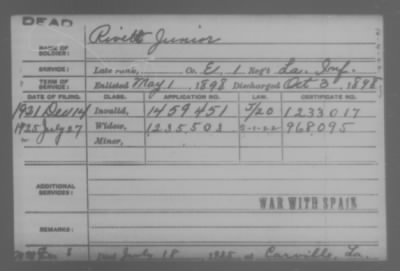 DEAD
NAME OF SOLDIER: Rivett Junior
SERVICE: Late rank, Co. E, 1 Reg't La. Inf.
TERM OF SERVICE: Enlisted May 1, 1898 Discharged Oct 3, 1898
DATE OF FILING. CLASS. APPLICATION NO. LAW. CERTIFICATE NO.
1921 Dec 14 Invalid, 1459451 5/20 1233017
1925 July 27 Widow, 1235503 968095
Minor,
ADDITIONAL SERVICES:
WAR WITH SPAIN
REMARKS:
Died July 18 1925 at Carville, La.